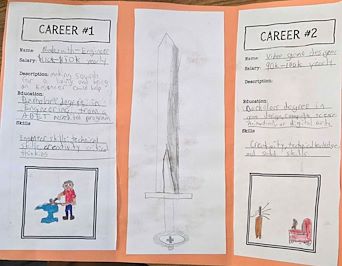 CAREER #1
Name Bladesmith-Engineer
Salary: yearly
Description: making swords
for a living and being
an engineer could help
Education:
Bachelor degree in
Engineering from a
ABET program
Skills
Engineer skills, technical
skills, creativity, critical
thinking
CAREER #2
Name Video game designer
Salary: 90k-100k yearly
Description:
Education:
Bachelors degree in
game design, computer science
Animation, or digital arts
Skills
Creativity, technical knowledge
and solid skills